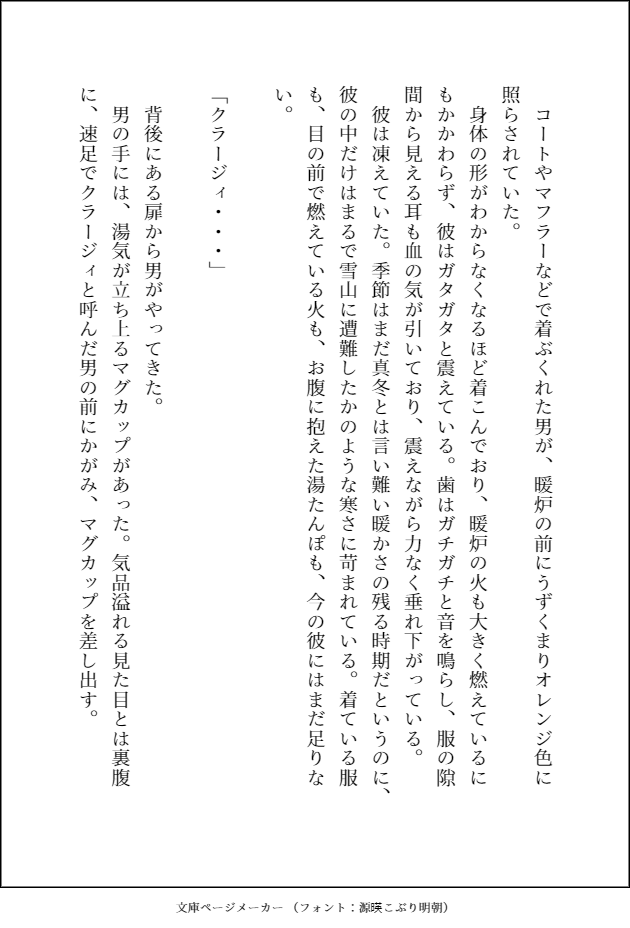 コートやマフラーなどで着ぶくれた男が、暖炉の前にうずくまりオレンジ色に
照らされていた。
　身体の形がわからなくなるほど着こんでおり、暖炉の火も大きく燃えているに
もかかわらず、彼はガタガタと震えている。歯はガチガチと音を鳴らし、服の隙
間から見える耳も血の気が引いており、震えながら力なく垂れ下がっている。
　彼は凍えていた。季節はまだ真冬とは言い難い暖かさの残る時期だというのに、
彼の中だけはまるで雪山に遭難したかのような寒さに苛まれている。着ている服
も、目の前で燃えている火も、お腹に抱えた湯たんぽも、今の彼にはまだ足りな
い。
「クラージィ・・・」
　背後にある扉から男がやってきた。
　男の手には、湯気が立ち上るマグカップがあった。気品溢れる見た目とは裏腹
に、速足でクラージィと呼んだ男の前にかがみ、マグカップを差し出す。
文庫ページメーカー（フォント：源暎こぶり明朝）